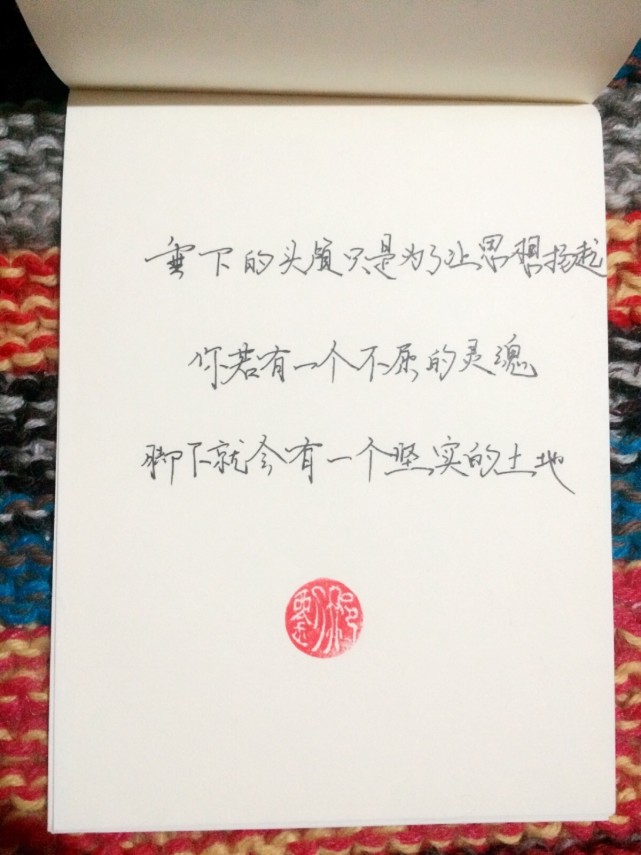 垂下的头颅只是为了让思想扬起
你若有一个不屈的灵魂
脚下就会有一个坚实的土地